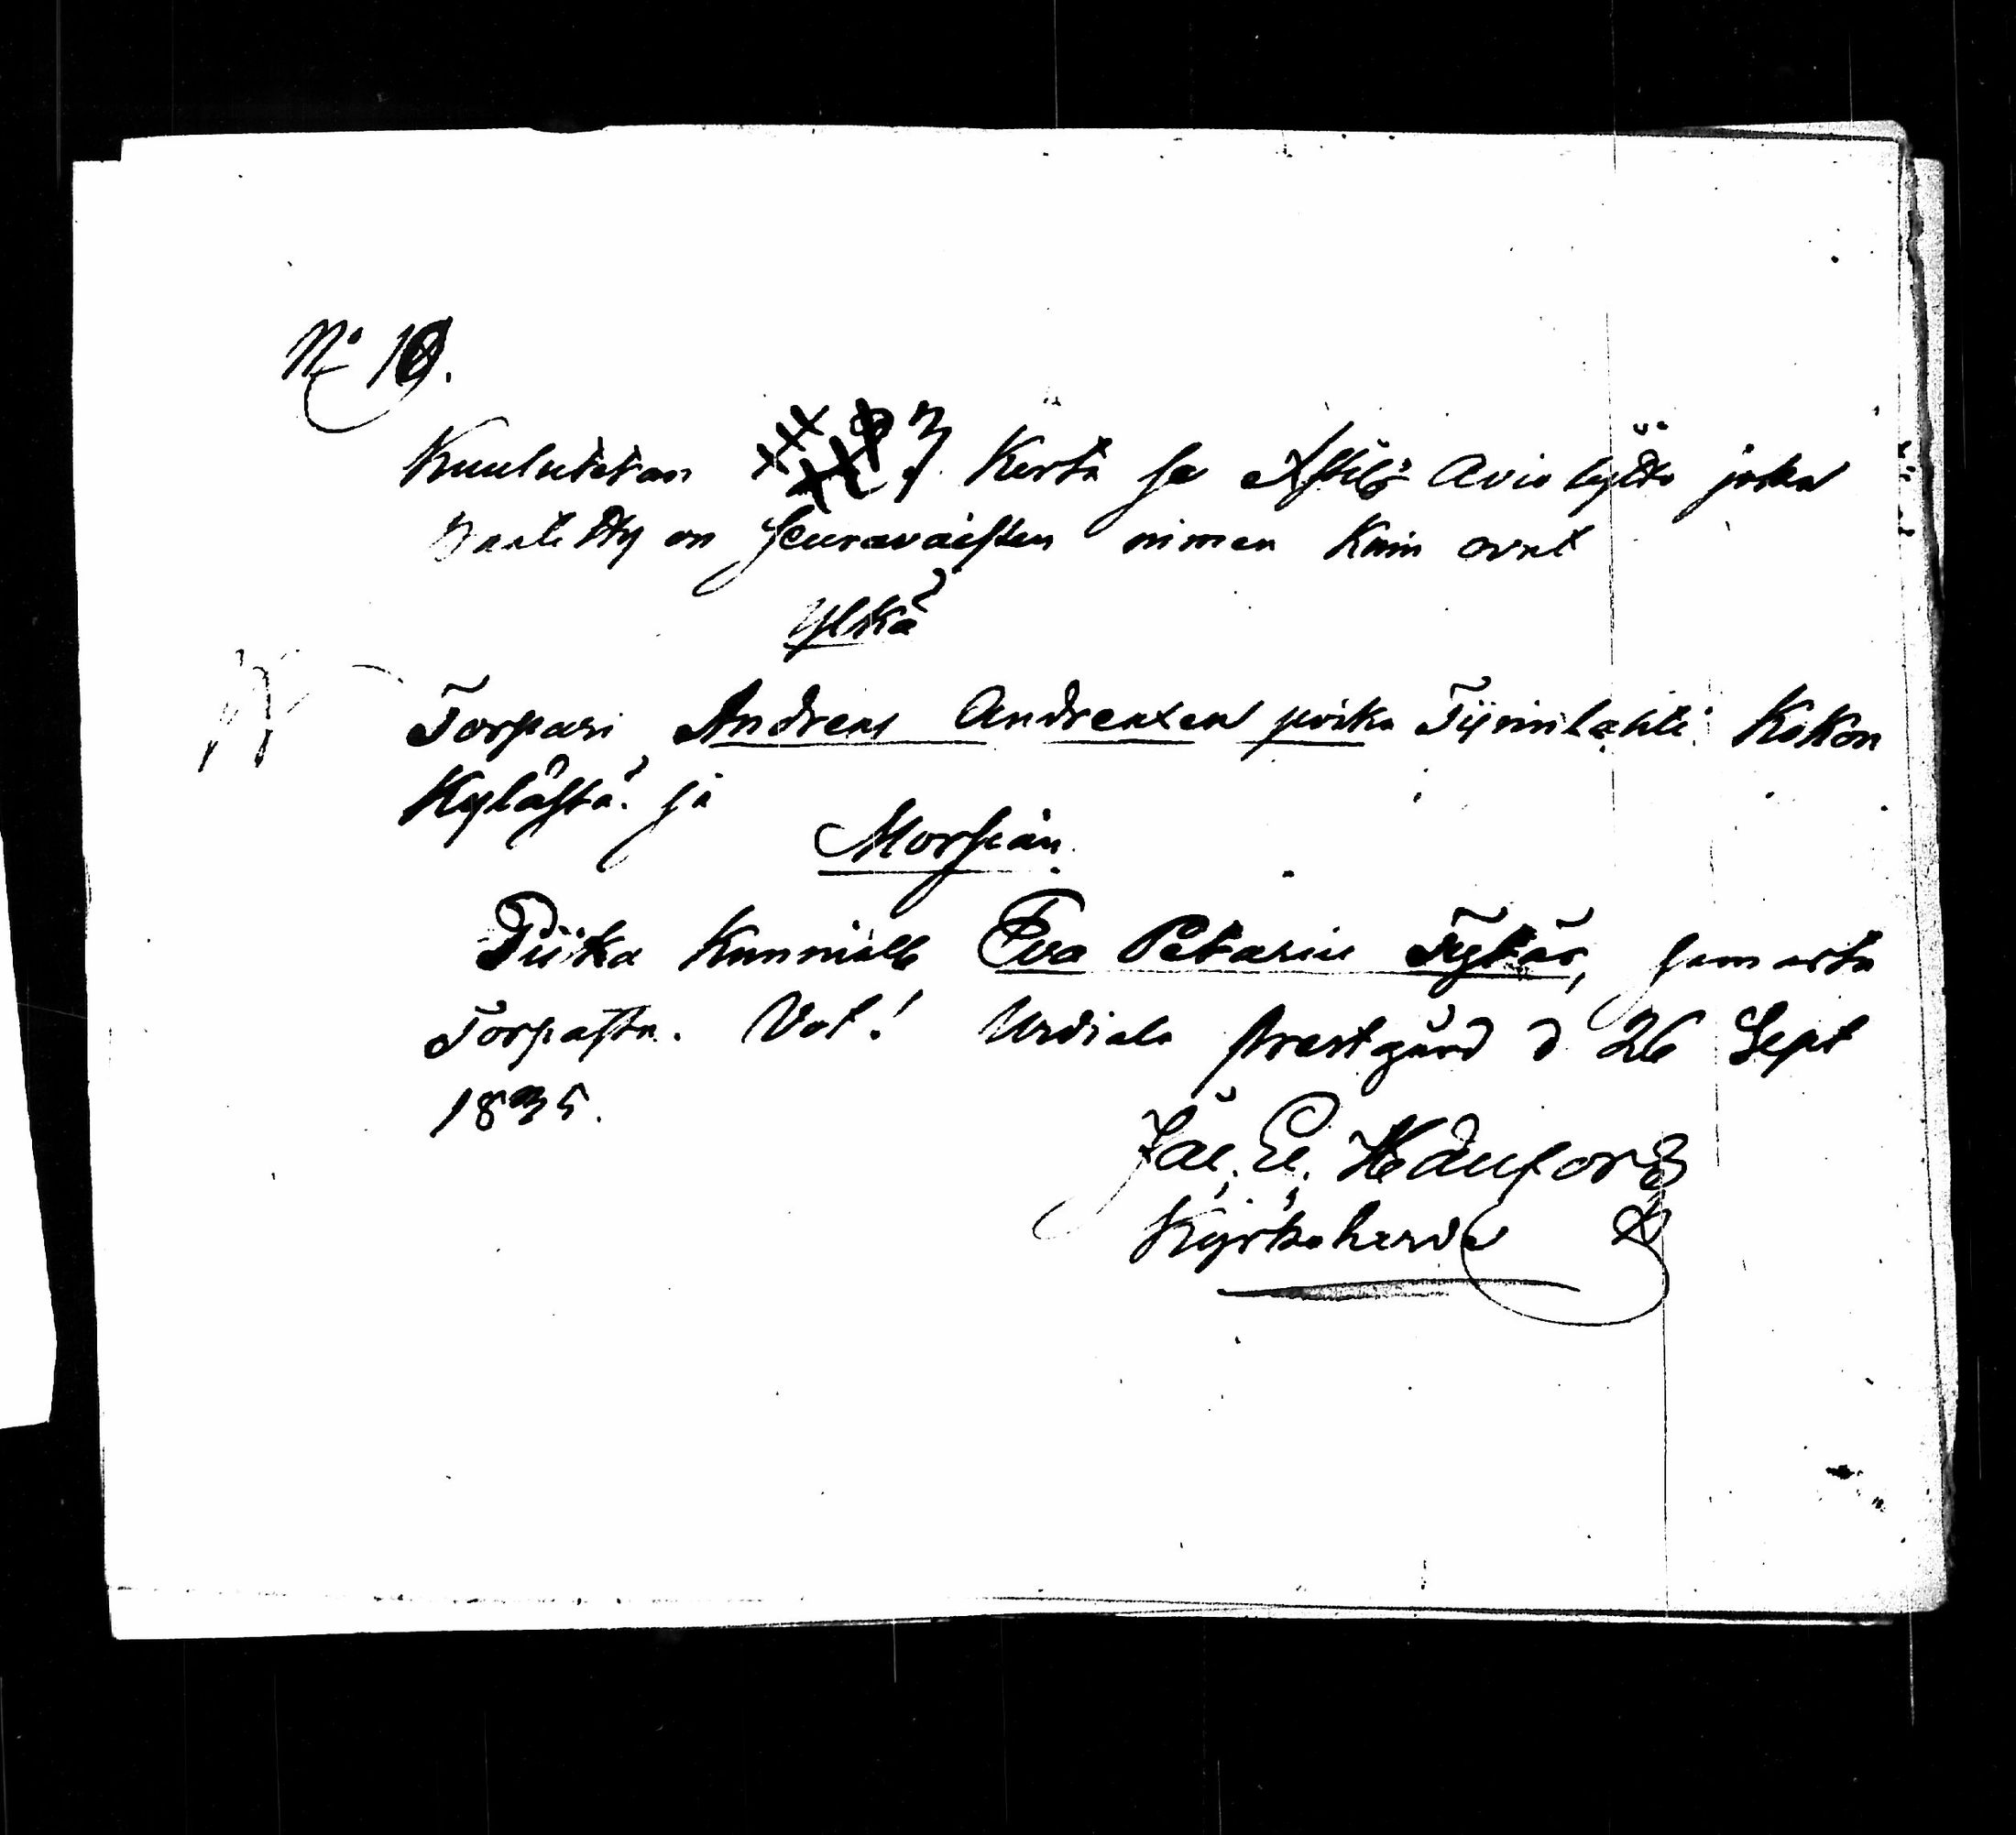 No 10.
Kuulutetan 3 Kerta se Avio lijtto joka
on seuravaisten nimen Kuin ovat
Ylkä
Torpari Andreas Andreaxen poika Tijrinlahti Kokon
Kylästä. ja
Morsian.
Piika Kunniall: Eva Petarin Tytär, samasta
Torpasta. Vot! Urdiala Prestgård d 26 Sept
1835.
Jac. El.
Kyrkoherde